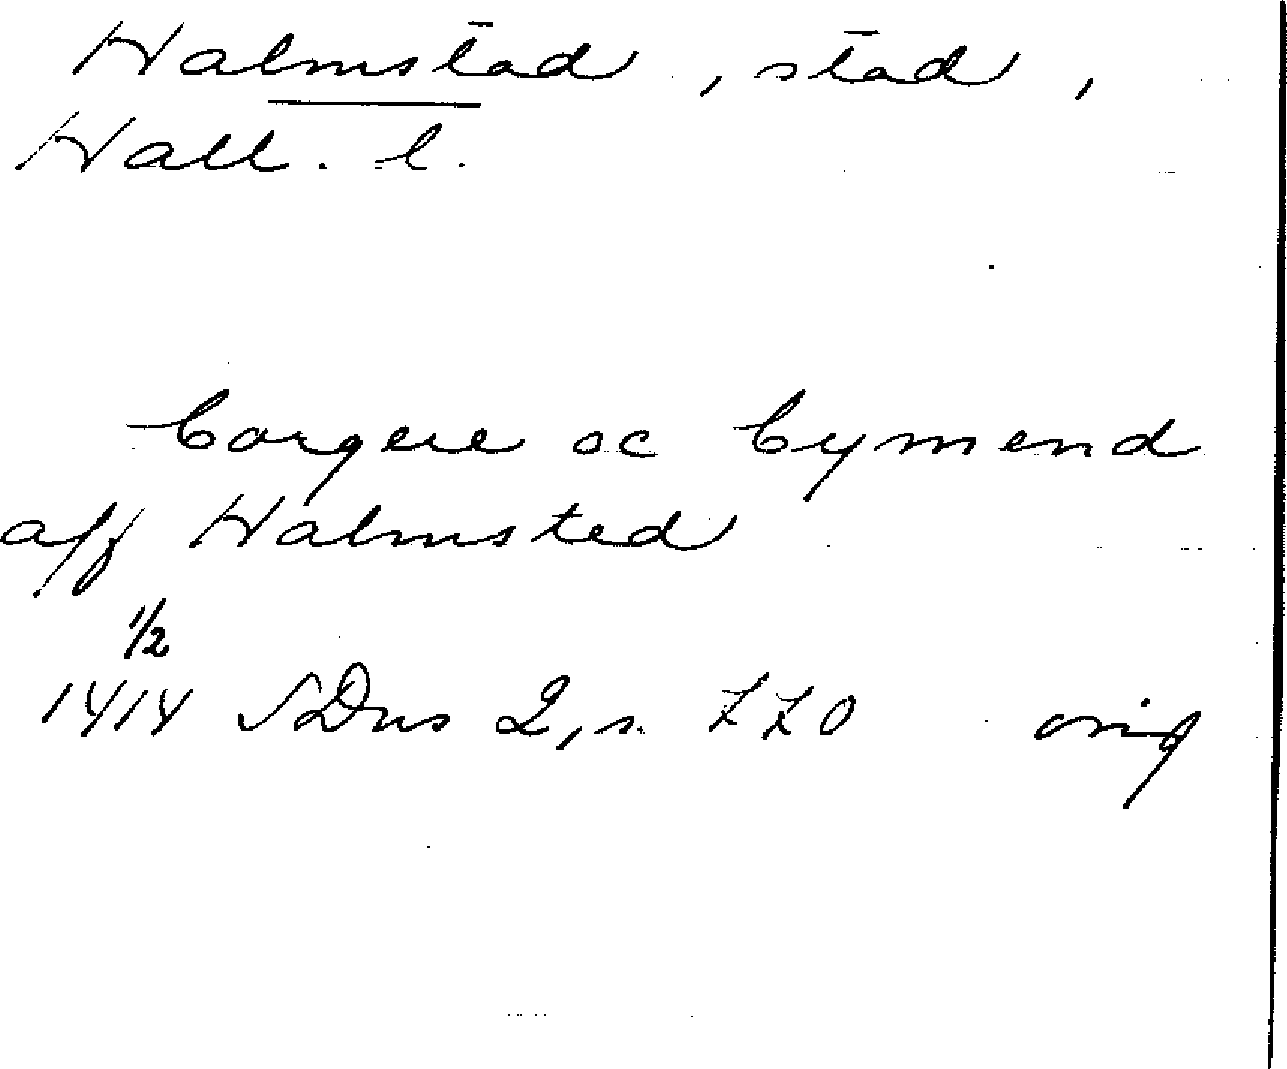 Halmstad, stad,
Hall. l.
borgere oc bymend
aff Halmsted
1/2
1414 SDns 2, s. 770 orig